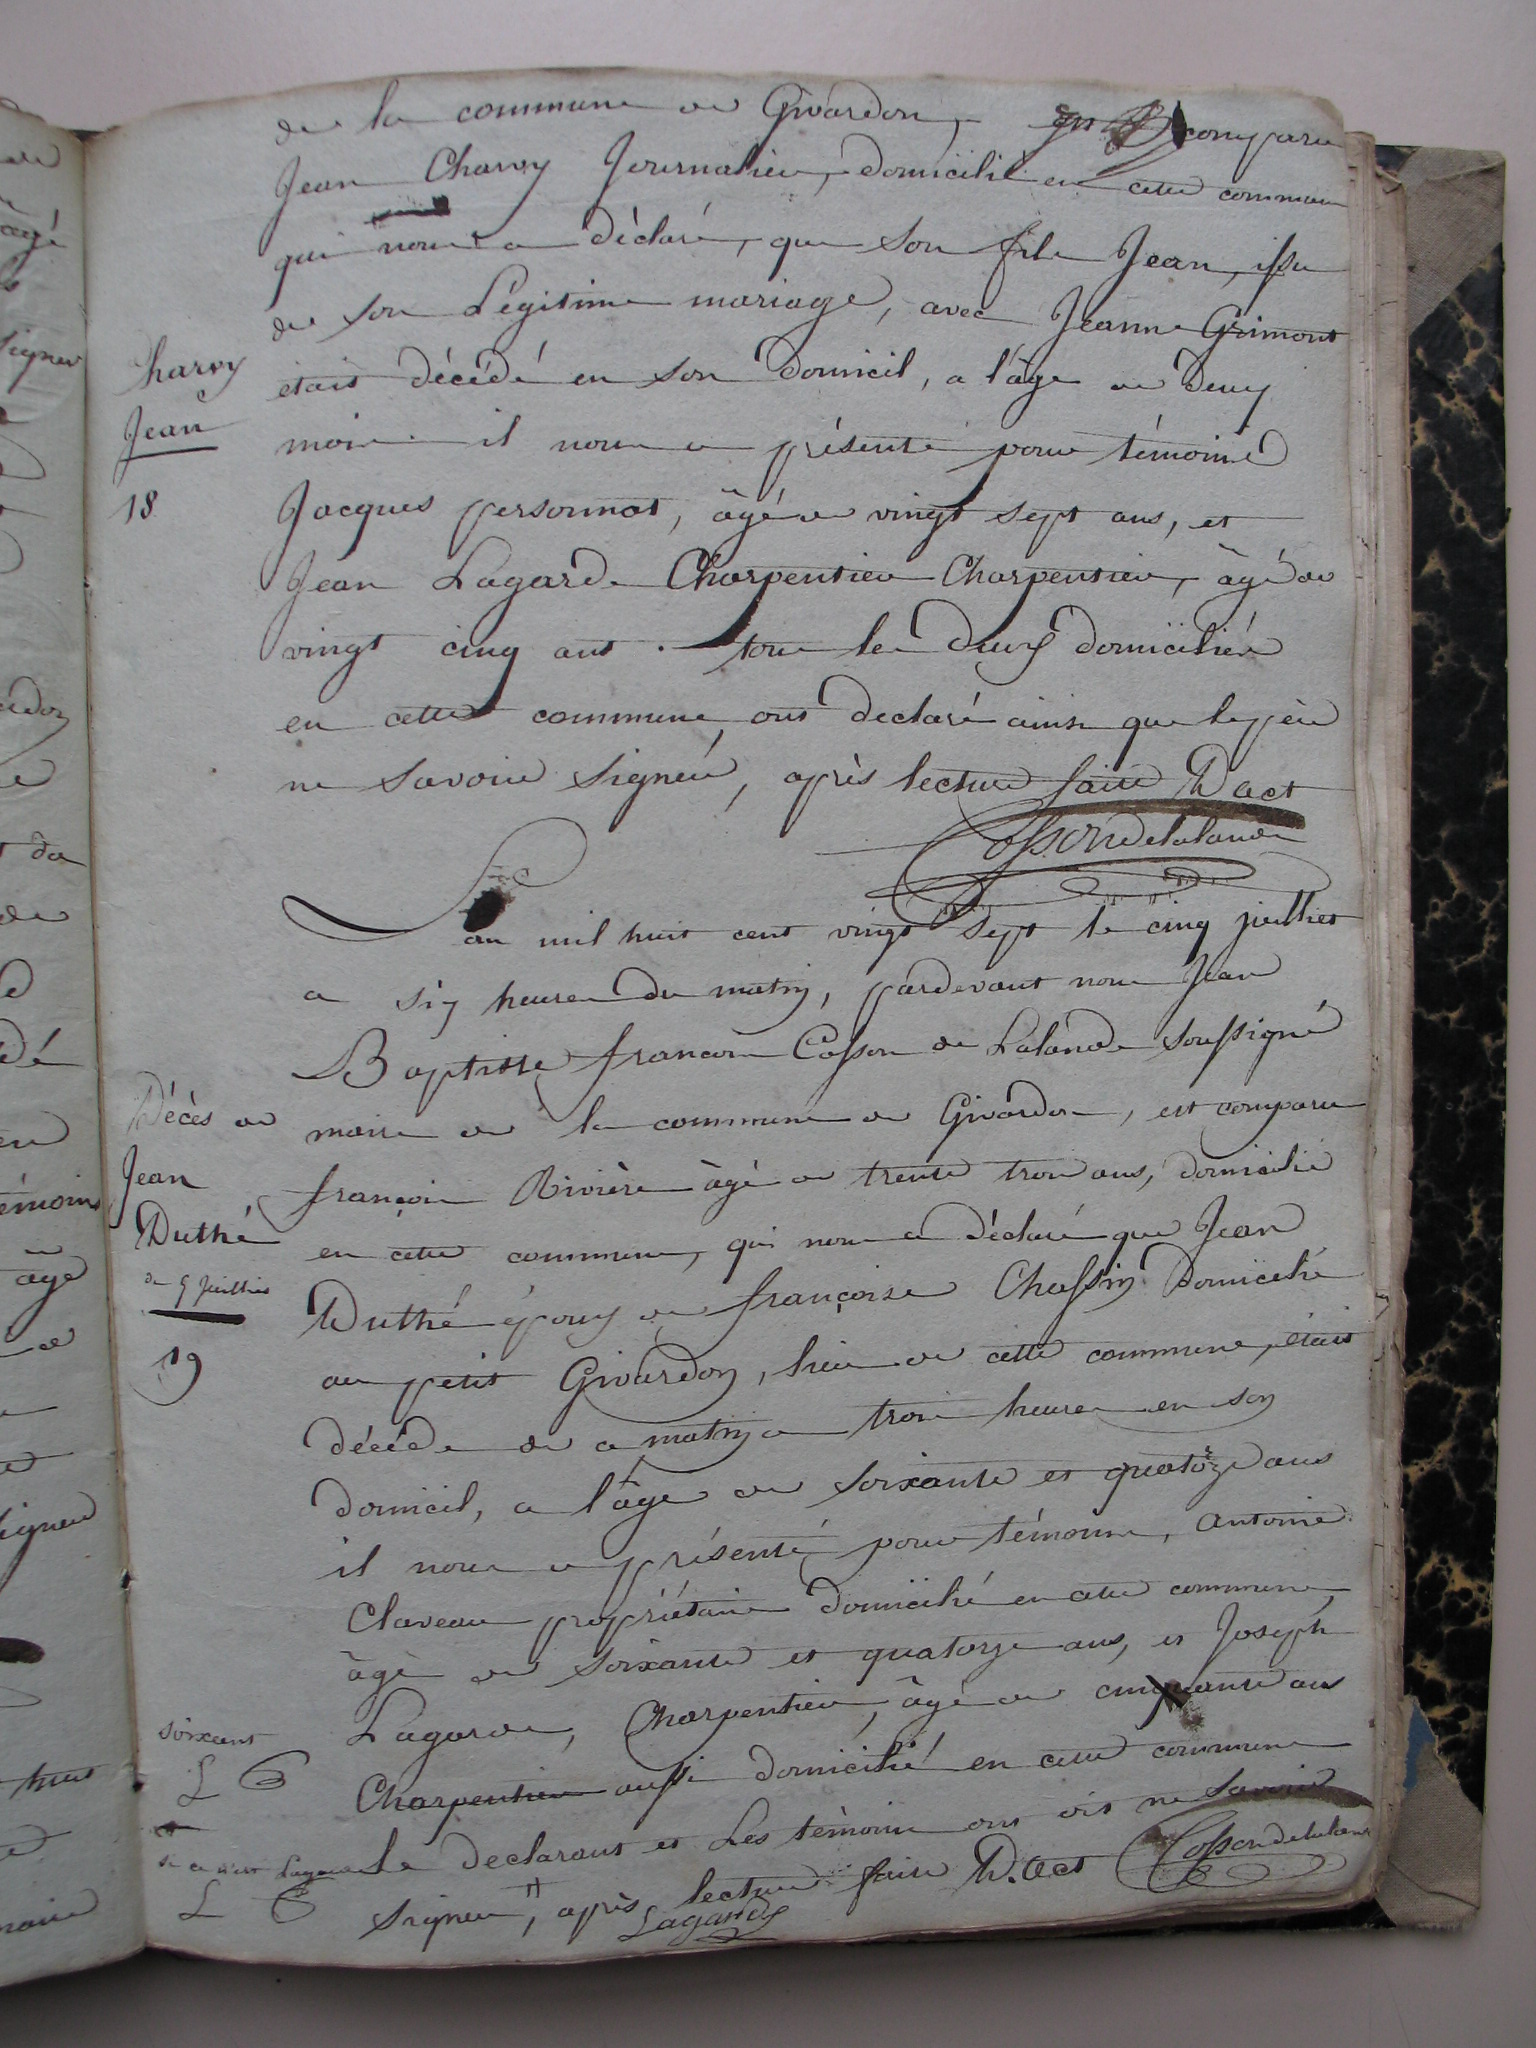 de la commune de Givardon, est comparu
Jean Charvy Journalier, domicilié en cette commune
qui nous a déclaré, que son fils Jean, issu
de son Légitime mariage, avec Jeanne Grimont
Charvy
Jean
18
était décédé en son domicil, a l'âge de deux
mois. il nous a présenté pour témoins
Jacques personnat, âgé de vingt sept ans, et
Jean Lagarde Charpentier Charpentier, âgé de
vingt cinq ans. tous les deux domiciliés
en cette commune, ont declaré ainsi que le père
ne savoir signer, après lecture faite D'act
Cosson de lalande
L'an mil huit cent vingt sept le cinq juillet
a six heures du matin, pardevant nous Jean
Baptiste françois Cosson de Lalande soussigné
Décès de
Jean
Duthé
du 5 Juillet
19
maire de la commune de Givardon, est comparu
françois Rivière âgé de trente trois ans, domicilié
en cette commune, qui nous a déclaré que Jean
Duthé époux de françoise Chassin Domicilié
au petit Givardon, lieu de cette commune, était
décédé de ce matin a trois heures en son
domicil, a l'âge de soixante et quatorze ans
il nous a présenté pour témoins, antoine
Claveau propriétaire domicilié en cette commune,
âgé de soixante et quatorze ans, et Joseph
Lagarde, Charpentier, âgé de cinquante ans
Charpentier aussi domicilié en cette commune
le declarant et Les témoins ont dit ne savoir
signer, après lecture faite D'act Cosson de lalande
Lagarde
soixant
L C
si ce n'est Lagarde
L C